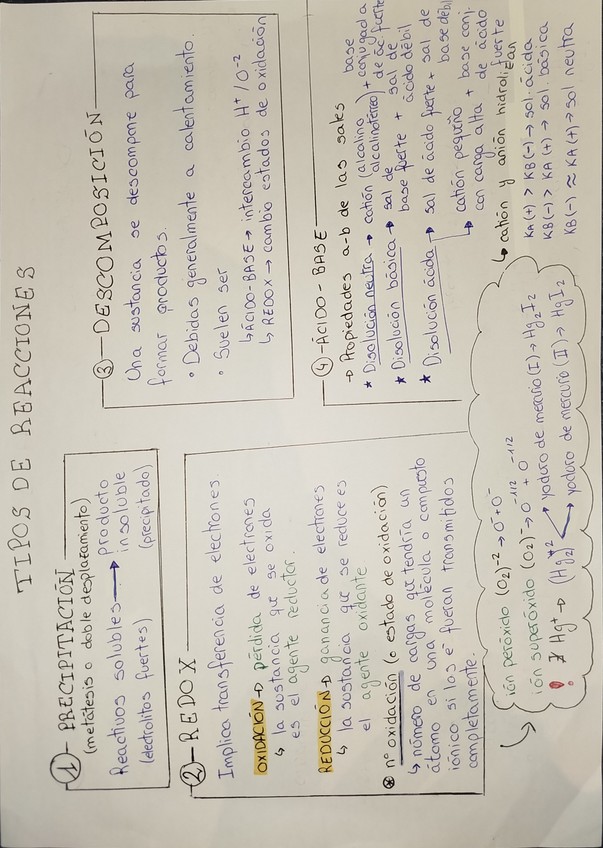 TIPOS DE REACCIONES
① - PRECIPITACIÓN
(metátesis o doble desplatamiento)
Reactivos solubles → producto
insoluble
(electrolitos fuertes) (precipitado)
② - REDOX
Implica transferencia de electrones.
OXIDACIÓN → pérdida de electrones
↳ la sustancia que se oxida
es el agente reductor.
REDUCCIÓN → ganancia de electrones
↳ la sustancia que se reduce es
el agente oxidante
⊛ nº oxidación (o estado de oxidación)
↳ número de cargas que tendría un
átomo en una molécula o compuesto
iónico si los e⁻ fueran transmitidos
completamente.
ión peróxido (O₂)⁻² → O⁻ + O⁻
ión superóxido (O₂)⁻ → O⁻¹/² + O⁻¹/²
! ∄ Hg⁺ → (Hg₂)⁺² yoduro de mercurio (I) → Hg₂I₂
yoduro de mercurio (II) → HgI₂
③ - DESCOMPOSICIÓN
Una sustancia se descompone para
formar productos.
• Debidas generalmente a calentamiento.
• Suelen ser
↳ ÁCIDO-BASE → intercambio H⁺ / O⁻²
↳ REDOX → cambio estados de oxidación
④ - ÁCIDO-BASE
→ Propiedades a-b de las sales
★ Disolución neutra → catión (alcalino / alcalinotérreo) + base conjugada de ác fuerte
★ Disolución básica → sal de base fuerte + sal de ácido débil
★ Disolución ácida → sal de ácido fuerte + sal de base débil
↳ catión pequeño con carga alta + base conj. de ácido fuerte
↳ catión y anión hidrolizan
KA (+) > KB (-) → sol. ácida
KB (-) > KA (+) → sol. básica
KB (-) ≈ KA (+) → sol neutra